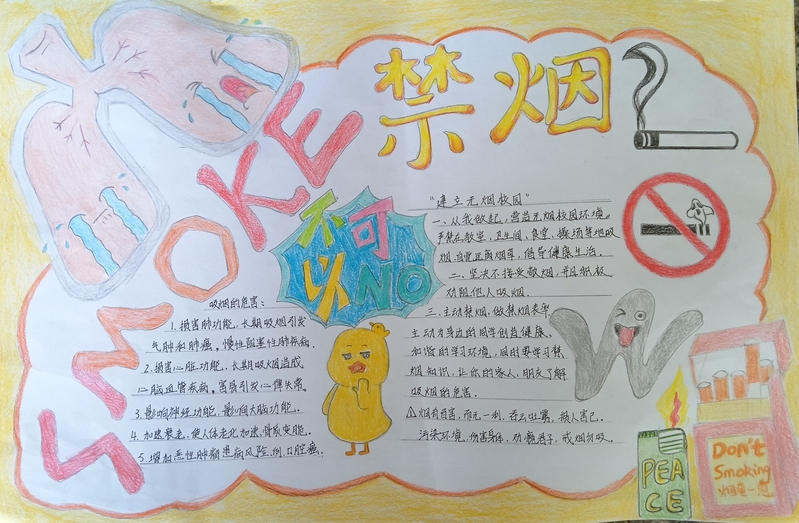 禁烟
SMOKE
不可
以NO
吸烟的危害:
1.损害肺功能,长期吸烟引发
气肿和肺癌,慢性阻塞性肺疾病.
2.损害心脏功能,长期吸烟造成
心脑血管疾病,容易引发心律失常.
3.影响神经功能,影响大脑功能.
4.加速衰老,使人体老化加速,骨质变脆.
5.增加恶性肿瘤患病风险,例:口腔癌.
“建立无烟校园”
一、从我做起,营造无烟校园环境.
严禁在教室、卫生间、食堂、操场等地吸
烟.自觉远离烟草,倡导健康生活.
二、坚决不接受敬烟,并且积极
劝阻他人吸烟.
三、主动禁烟,做禁烟表率.
主动为身边的同学创造健康、
和谐的学习环境,同时要学习禁
烟知识,让你的家人、朋友了解
吸烟的危害.
烟有百害,而无一利,吞云吐雾,损人害己.
污染环境,伤害身体,劝君子,戒烟勿吸.
PEA
CE
Don't
Smoking